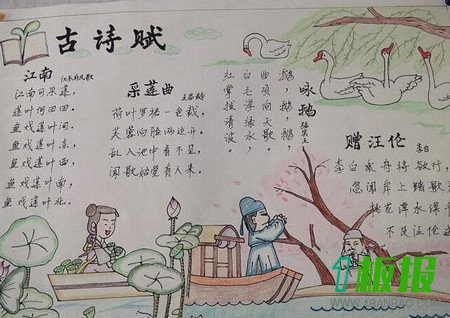 古诗赋
江南
江南可采莲,
莲叶何田田。
鱼戏莲叶间。
鱼戏莲叶东
鱼戏莲叶西
鱼戏莲叶南
鱼戏莲叶北。
采莲曲 王昌龄
荷叶罗裙一色裁,
芙蓉向脸两边开。
乱入池中看不见,
闻歌始觉有人来。
咏鹅 骆宾王
鹅,鹅,鹅,
曲项向天歌,
白毛浮绿水,
红掌拨清波。
赠汪伦 李白
李白乘舟将欲行,
忽闻岸上踏歌
桃花潭水深千
不及汪伦送
1板报